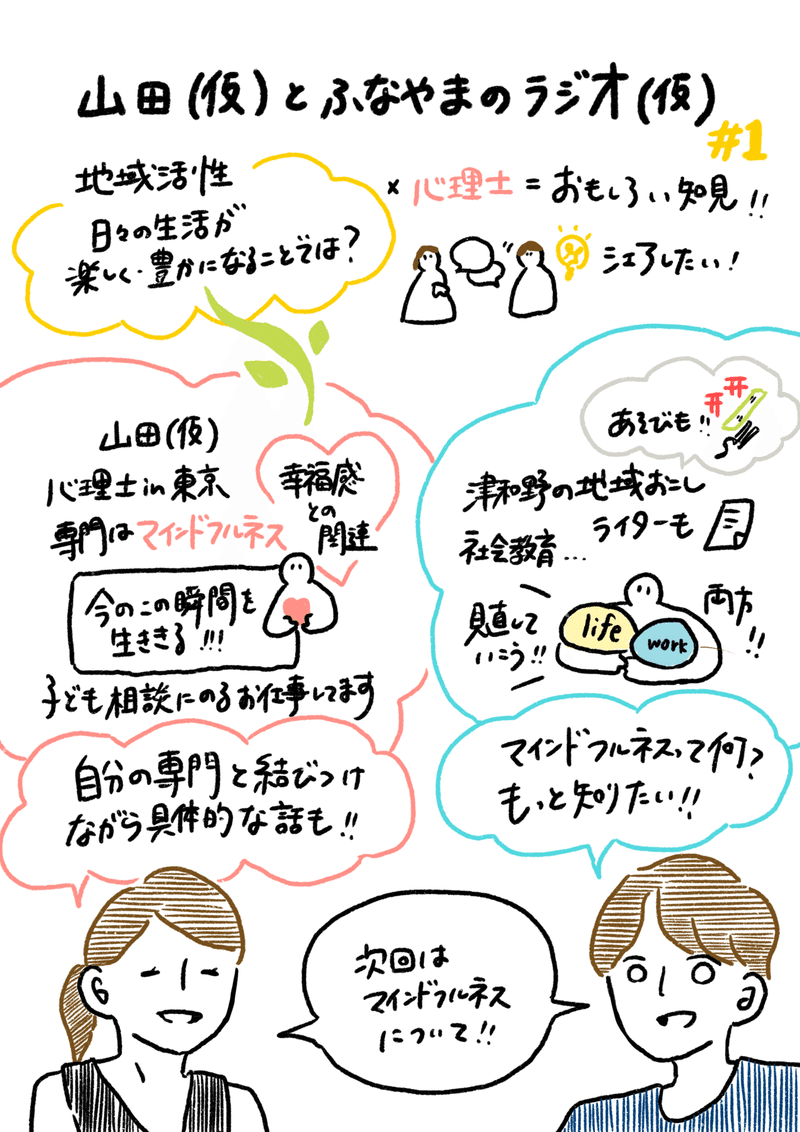 山田(仮)とふなやまのラジオ(仮)
#1
地域活性
日々の生活が
楽しく・豊かになることでは?
× 心理士 = おもしろい知見!!
シェアしたい!
山田(仮)
心理士in東京
専門はマインドフルネス
幸福感
との
関連
今のこの瞬間を
生ききる!!!
子ども相談にのるお仕事してます
あそびも!!
津和野の地域おこし
ライターも
社会教育...
見直して
いこう!!
life
work
両方
!!
自分の専門と結びつけ
ながら具体的な話も!!
マインドフルネスって何?
もっと知りたい!!
次回は
マインドフルネス
について!!